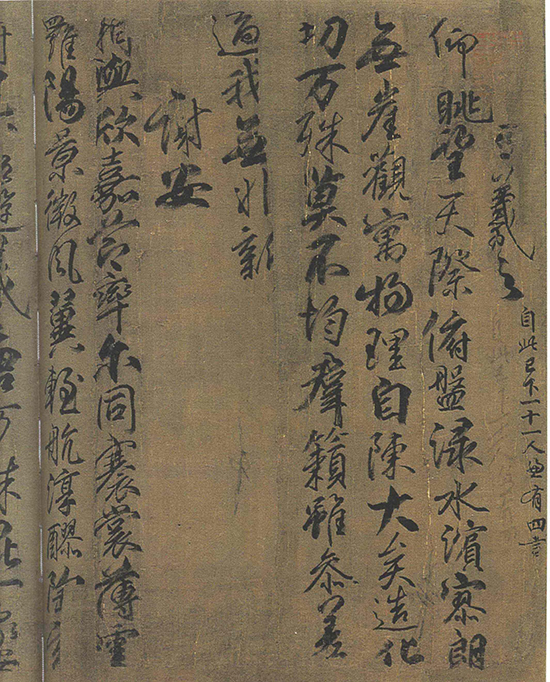 王羲之
自此已下一十一人並有四言
仰眺望天際俯盤淥水濱寥朗
無崖觀寓物理自陳大矣造化
切万殊莫不均群籟雖參差
適我無非新
謝安
相與欣嘉節率尔同褰裳薄雲
羅陽景微風翼輕航淳醪陶丹